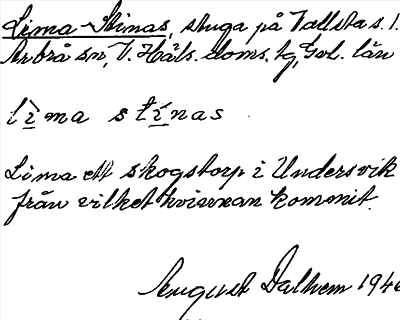 Lima-Stinas, stuga på Vallsta s. 1.
Arbrå sn, V. Häls. doms. tg, Gvl. län
lima stinas
Lima ett skogstorp i Undersvik
från vilket kvinnan kommit.
August Dalhem 1946